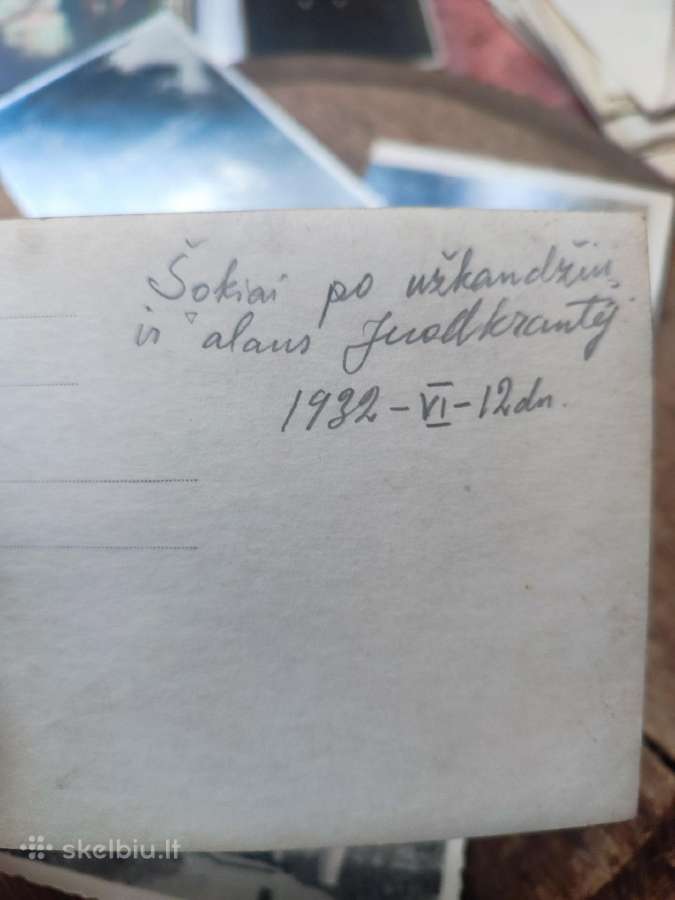 Šokiai po užkandžių
ir alaus Juodkrantėj
1932-VI-12 dn.
skelbiu.lt